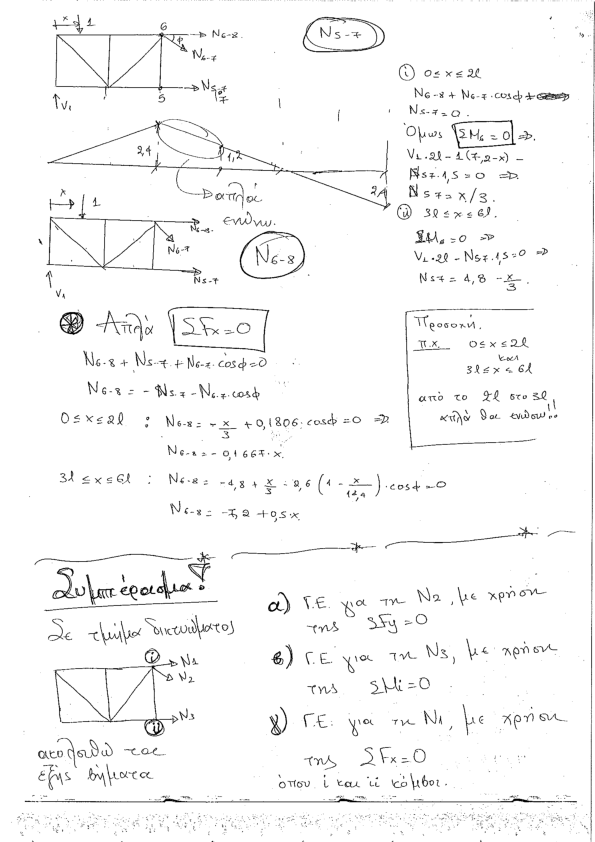 x 1 6 N6-8
φ
N6-7
N5-7
V1 5 7
N5-7
i 0≤x≤2l
N6-8 + N6-7.cosφ +
N5-7=0.
Όμως ΣM6=0 =>
V1.2l-1(7,2-x)-
N57.1,5=0 =>
N57=x/3.
ii 3l≤x≤6l.
ΣM6=0 =>
V1.2l-N57.1,5=0 =>
N57=4,8-x/3.
2,4 1,2 2,4
απλά
ενώνω.
x 1 N6-8
N6-7
N5-7
V1
N6-8
Απλά ΣFx=0
N6-8+N5-7+N6-7.cosφ=0
N6-8=-N5-7-N6-7.cosφ
0≤x≤2l : N6-8=-x/3+0,1806.cosφ=0 =>
N6-8=-0,1667.x.
3l≤x≤6l : N6-8=-4,8+x/3-2,6(1-x/14,4).cosφ=0
N6-8=-7,2+0,5.x
Προσοχή.
π.χ. 0≤x≤2l
και
3l≤x≤6l
από το 2l στο 3l
απλά θα ενώσω!!
Συμπέρασμα!
Σε τμήμα δικτυώματος
i N1
N2
N3
ii
ακολουθώ τα
εξής βήματα
α) Γ.Ε. για τη N2, με χρήση
της ΣFy=0
β) Γ.Ε. για τη N3, με χρήση
της ΣMi=0
γ) Γ.Ε. για τη N1, με χρήση
της ΣFx=0
όπου i και ii κόμβοι.